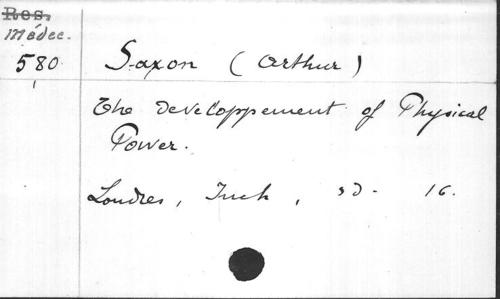 Res.
médec.
580
Saxon (Arthur)
The developpement of Physical
Power.
Londres, , sd. 16.